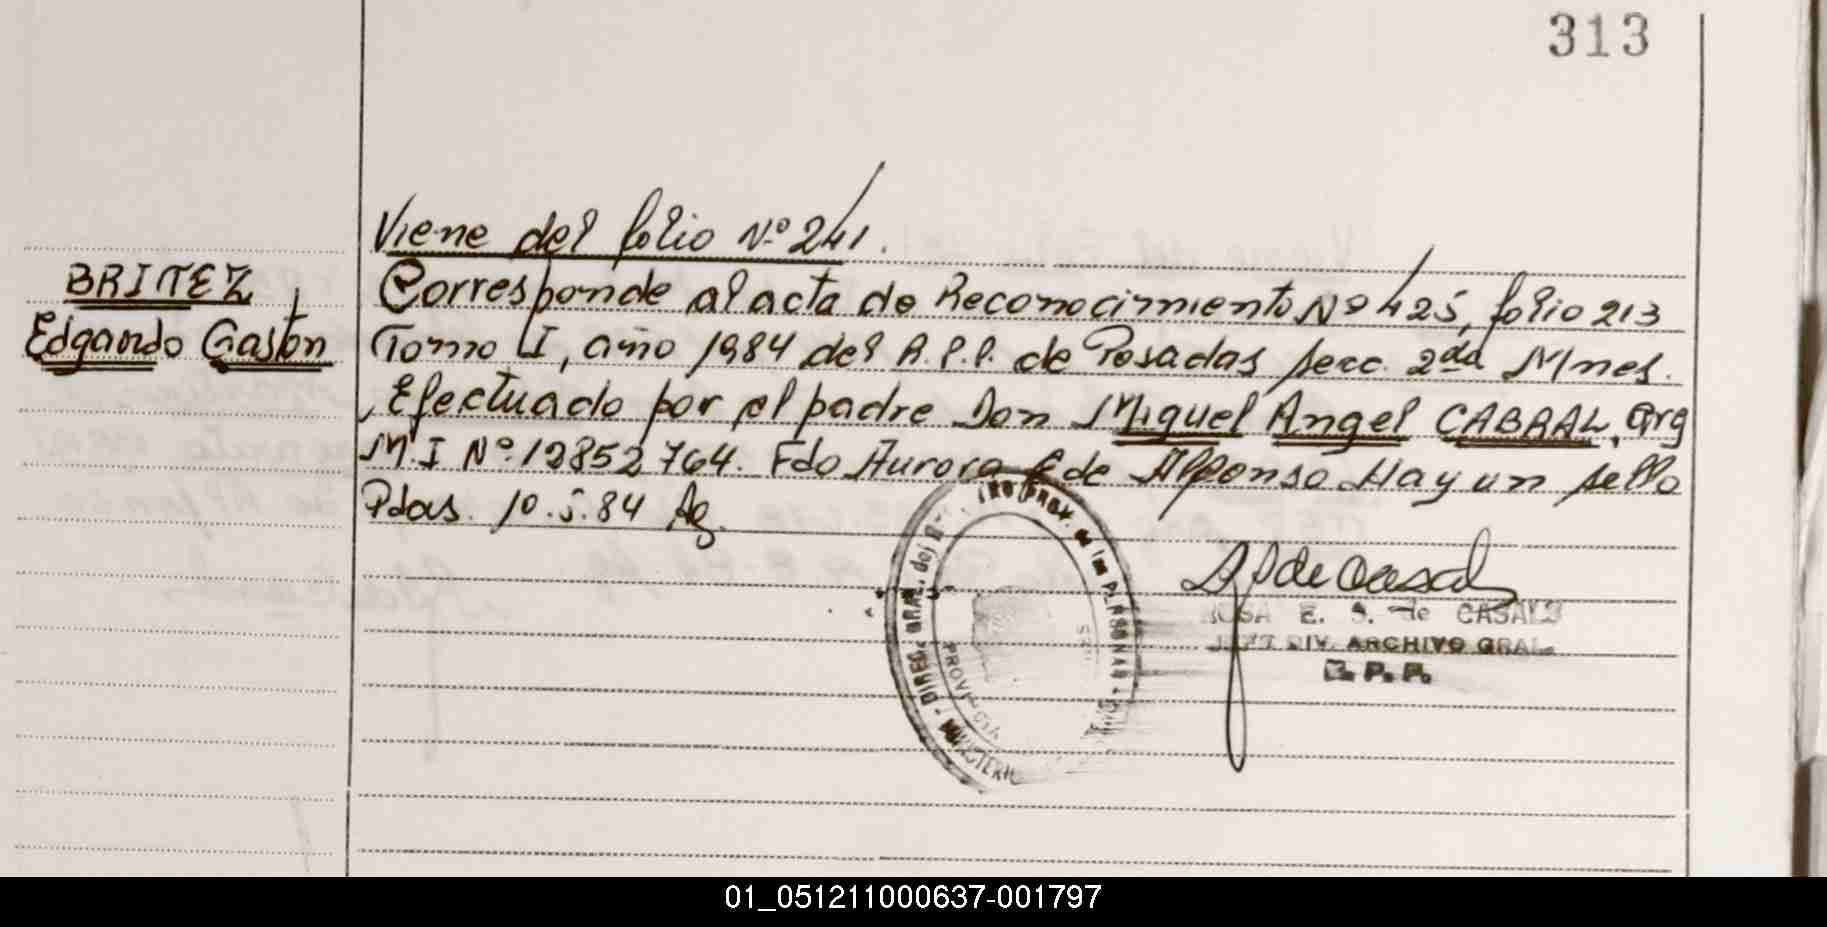 313
Viene del folio Nº 241.
BRITEZ
Edgardo Gastón
Corresponde al acta de Reconocimiento Nº 425, folio 213
Tomo I, año 1984 del R.P.P. de Posadas secc. 2da Mnes.
Efectuado por el padre Don Miguel Angel CABRAL, arg
M.I Nº 12852764. Fdo Aurora E de Alfonso Hay un sello
Pdas. 10.5.84
DIREC. GRAL. del PROV. de las PERSONAS
MINISTERIO
E. S. de CASALS
DIV. ARCHIVO GRAL
R. P. P.
01_051211000637-001797